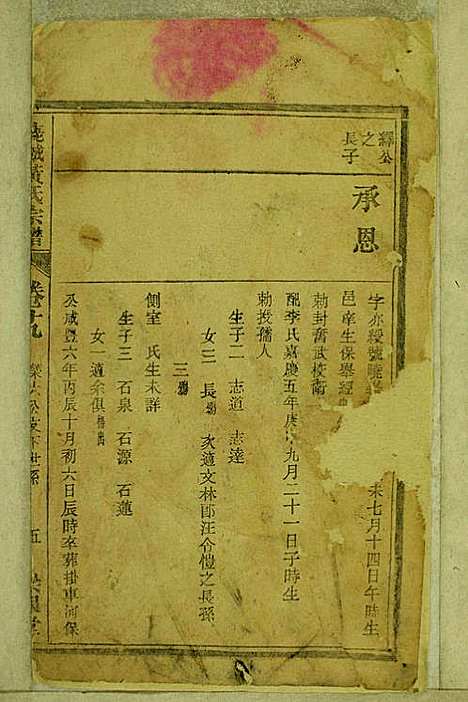 繹公
之
長子
承恩
字亦綬號曉
未七月十四日午時生
邑庠生保舉經
勅封奮武校衛
配李氏嘉慶五年庚
九月二十一日子時生
勅授孺人
生子二 志道 志達
女三 長殤 次適文林郎汪令愷之長孫
三殤
側室 氏生未詳
生子三 石泉 石源 石蓮
女一適余俱
公咸豐六年丙辰十月初六日辰時卒葬掛車河保
黃氏宗譜
卷十九
世孫
五
堂